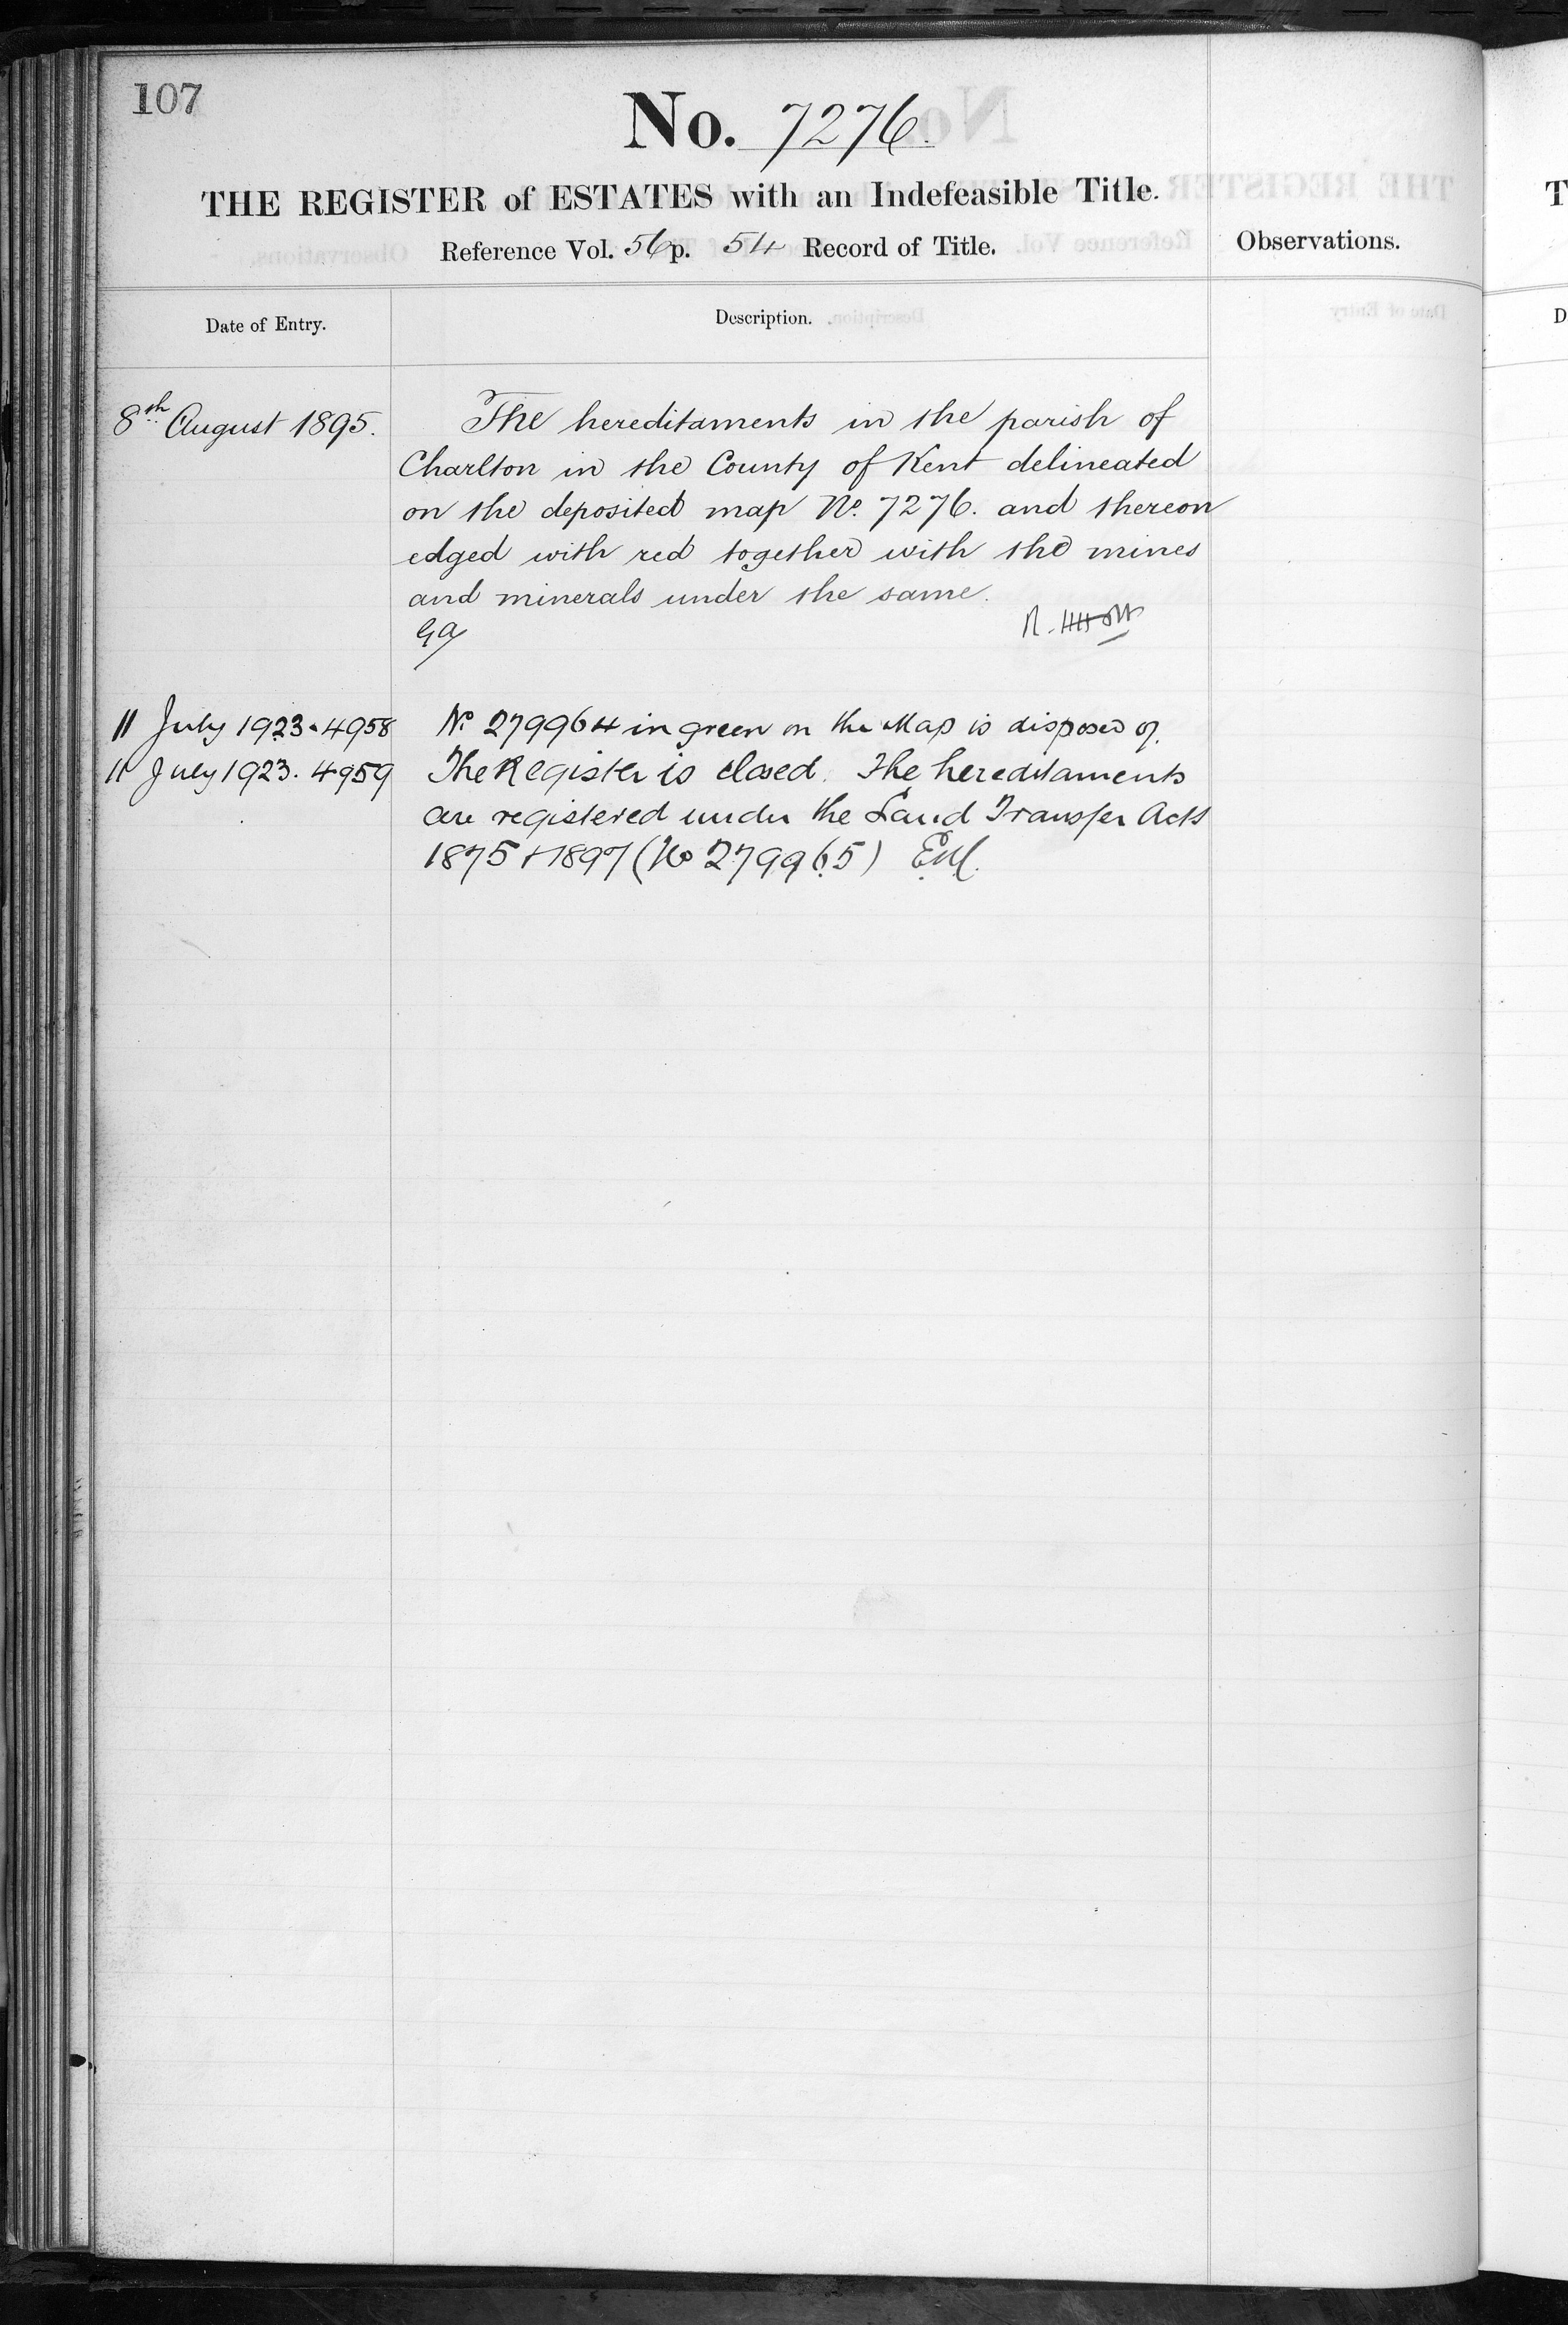 107
No. 7276.
THE REGISTER of ESTATES with an Indefeasible Title.
Reference Vol. 56 p. 54 Record of Title.
Observations.
Date of Entry.
Description.
8th August 1895.
The hereditaments in the parish of
Charlton in the County of Kent delineated
on the deposited map No. 7276. and thereon
edged with red together with the mines
and minerals under the same.
11 July 1923. 4958
No 279964 in green on the Map is disposed of.
11 July 1923. 4959
The Register is closed. The hereditaments
are registered under the Land Transfer Acts
1875 & 1897 (No 279965)